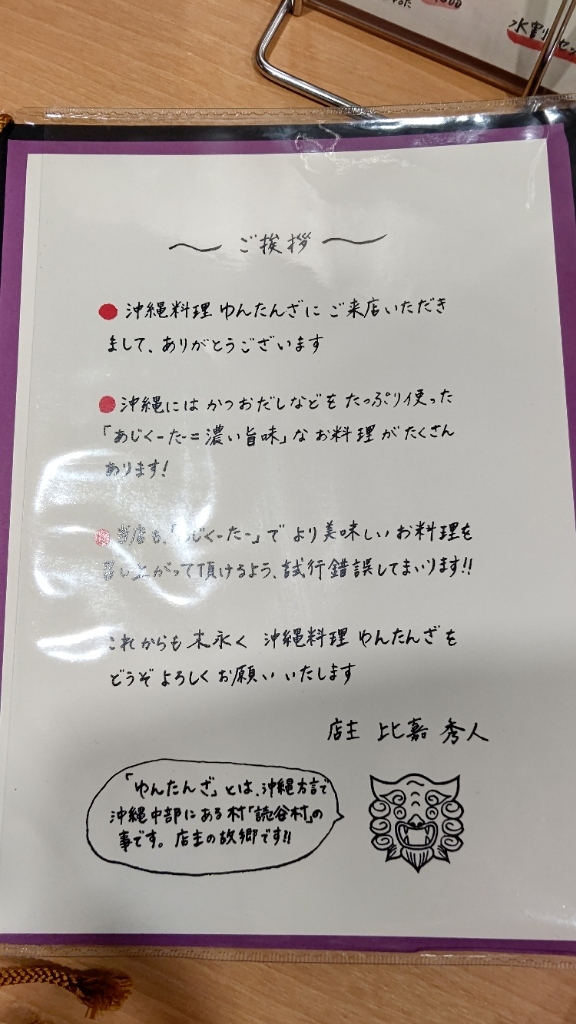 000
水割りセッ
〜 ご挨拶 〜
● 沖縄料理 ゆんたんざに ご来店いただき
まして、ありがとうございます
● 沖縄には かつおだしなどを たっぷり使った
「あじくーたー=濃い旨味」な お料理が たくさん
あります!
● 当店も、「あじくーたー」で より美味しい お料理を
召し上がって頂けるよう、試行錯誤してまいります!!
これからも 末永く 沖縄料理 ゆんたんざを
どうぞ よろしく お願い いたします
店主 比嘉 秀人
「ゆんたんざ」とは、沖縄方言で
沖縄中部にある村「読谷村」の
事です。店主の故郷です!!